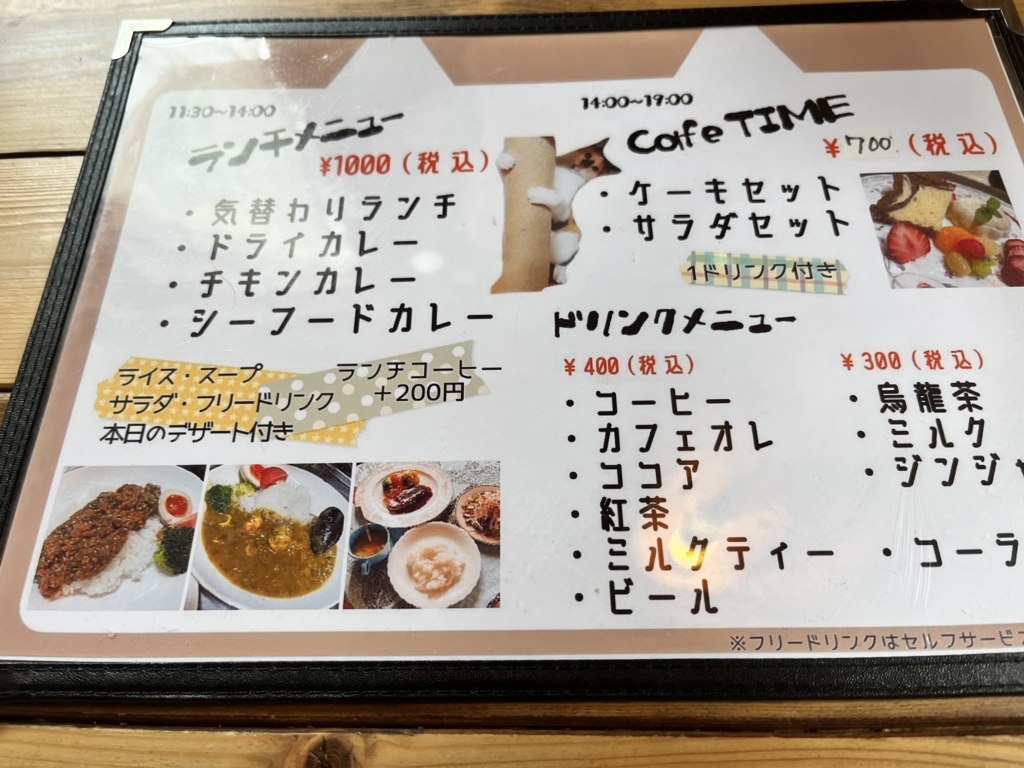 11:30~14:00
ランチメニュー
¥1000(税込)
・気替わりランチ
・ドライカレー
・チキンカレー
・シーフードカレー
ライス・スープ
サラダ・フリードリンク
本日のデザート付き
ランチコーヒー
+200円
14:00~19:00
Cafe TIME
¥700(税込)
・ケーキセット
・サラダセット
1ドリンク付き
ドリンクメニュー
¥400(税込)
・コーヒー
・カフェオレ
・ココア
・紅茶
・ミルクティー
・ビール
¥300(税込)
・烏龍茶
・ミルク
・ジンジャ
・コーラ
※フリードリンクはセルフサービス